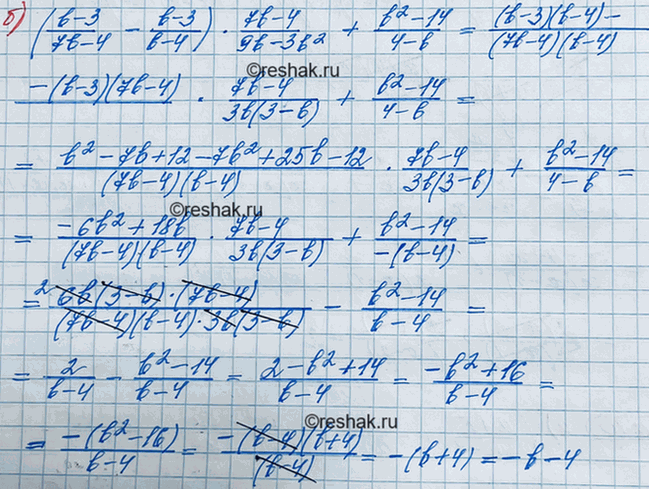 б) ((b-3)/(7b-4) - (b-3)/(b-4)) · (7b-4)/(9b-3b²) + (b²-14)/(4-b) = ((b-3)(b-4)-)/((7b-4)(b-4))
©reshak.ru
(-(b-3)(7b-4))/ · (7b-4)/(3b(3-b)) + (b²-14)/(4-b) =
= (b²-7b+12-7b²+25b-12)/((7b-4)(b-4)) · (7b-4)/(3b(3-b)) + (b²-14)/(4-b) =
©reshak.ru
= (-6b²+18b)/((7b-4)(b-4)) · (7b-4)/(3b(3-b)) + (b²-14)/(-(b-4)) =
= ²(6b(3-b)·(7b-4))/((7b-4)(b-4)·3b(3-b)) - (b²-14)/(b-4) =
= 2/(b-4) - (b²-14)/(b-4) = (2-b²+14)/(b-4) = (-b²+16)/(b-4) =
©reshak.ru
= (-(b²-16))/(b-4) = (-(b-4)(b+4))/(b-4) = -(b+4) = -b-4